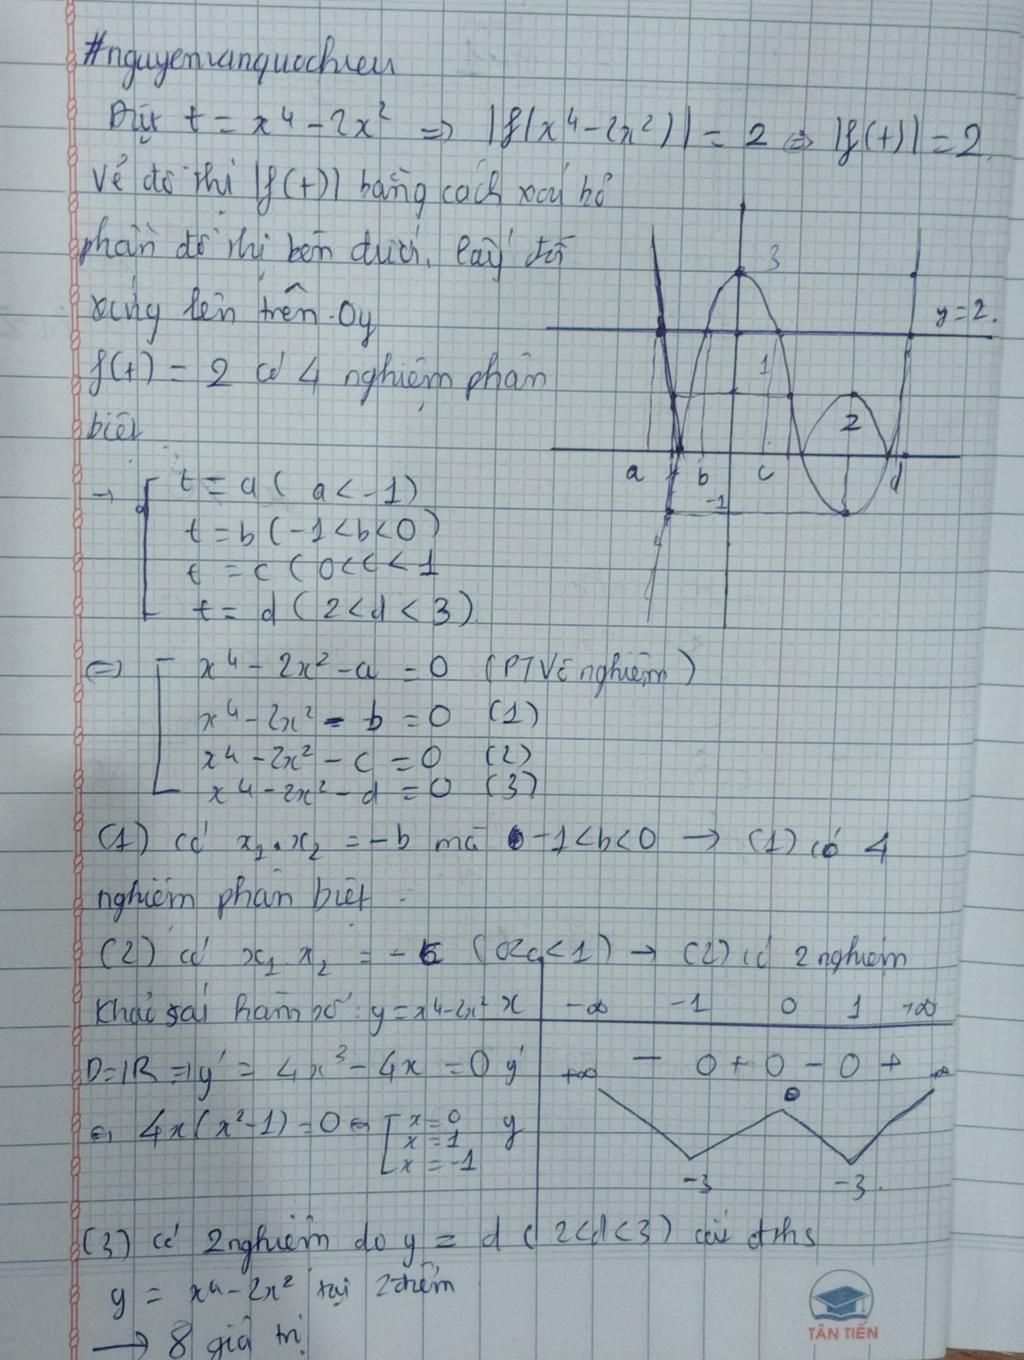 #nguyentranquochieu
Đặt t = x⁴ - 2x² => |f(x⁴ - 2x²)| = 2 => |f(t)| = 2
Vẽ đồ thị |f(t)| bằng cách xoá bỏ
phần đồ thị bên dưới, lấy đối
xứng lên trên Oy
3
y = 2.
1
2
a b c d
-1
f(t) = 2 có 4 nghiệm phân
biệt
→ [ t = a ( a < -1)
t = b ( -1 < b < 0)
t = c ( 0 < c < 1
t = d ( 2 < d < 3)
<=> [ x⁴ - 2x² - a = 0 (PTVô nghiệm)
x⁴ - 2x² - b = 0 (1)
x⁴ - 2x² - c = 0 (2)
x⁴ - 2x² - d = 0 (3)
(1) có x₁.x₂ = -b mà -1 < b < 0 → (1) có 4
nghiệm phân biệt
(2) có x₁ x₂ = -c (0<c<1) → (2) có 2 nghiệm
Khảo sát hàm số: y = x⁴-2x² x -∞ -1 0 1 +∞
D = R => y' = 4x³ - 4x = 0 y' - 0 + 0 - 0 +
<=> 4x(x² - 1) = 0 <=> [ x = 0
x = 1
x = -1
y +∞ -3 0 -3 +∞
(3) có 2 nghiệm do y = d ( 2<d<3) cắt đths
y = x⁴ - 2x² tại 2 điểm
→ 8 giá trị
TÂN TIẾN